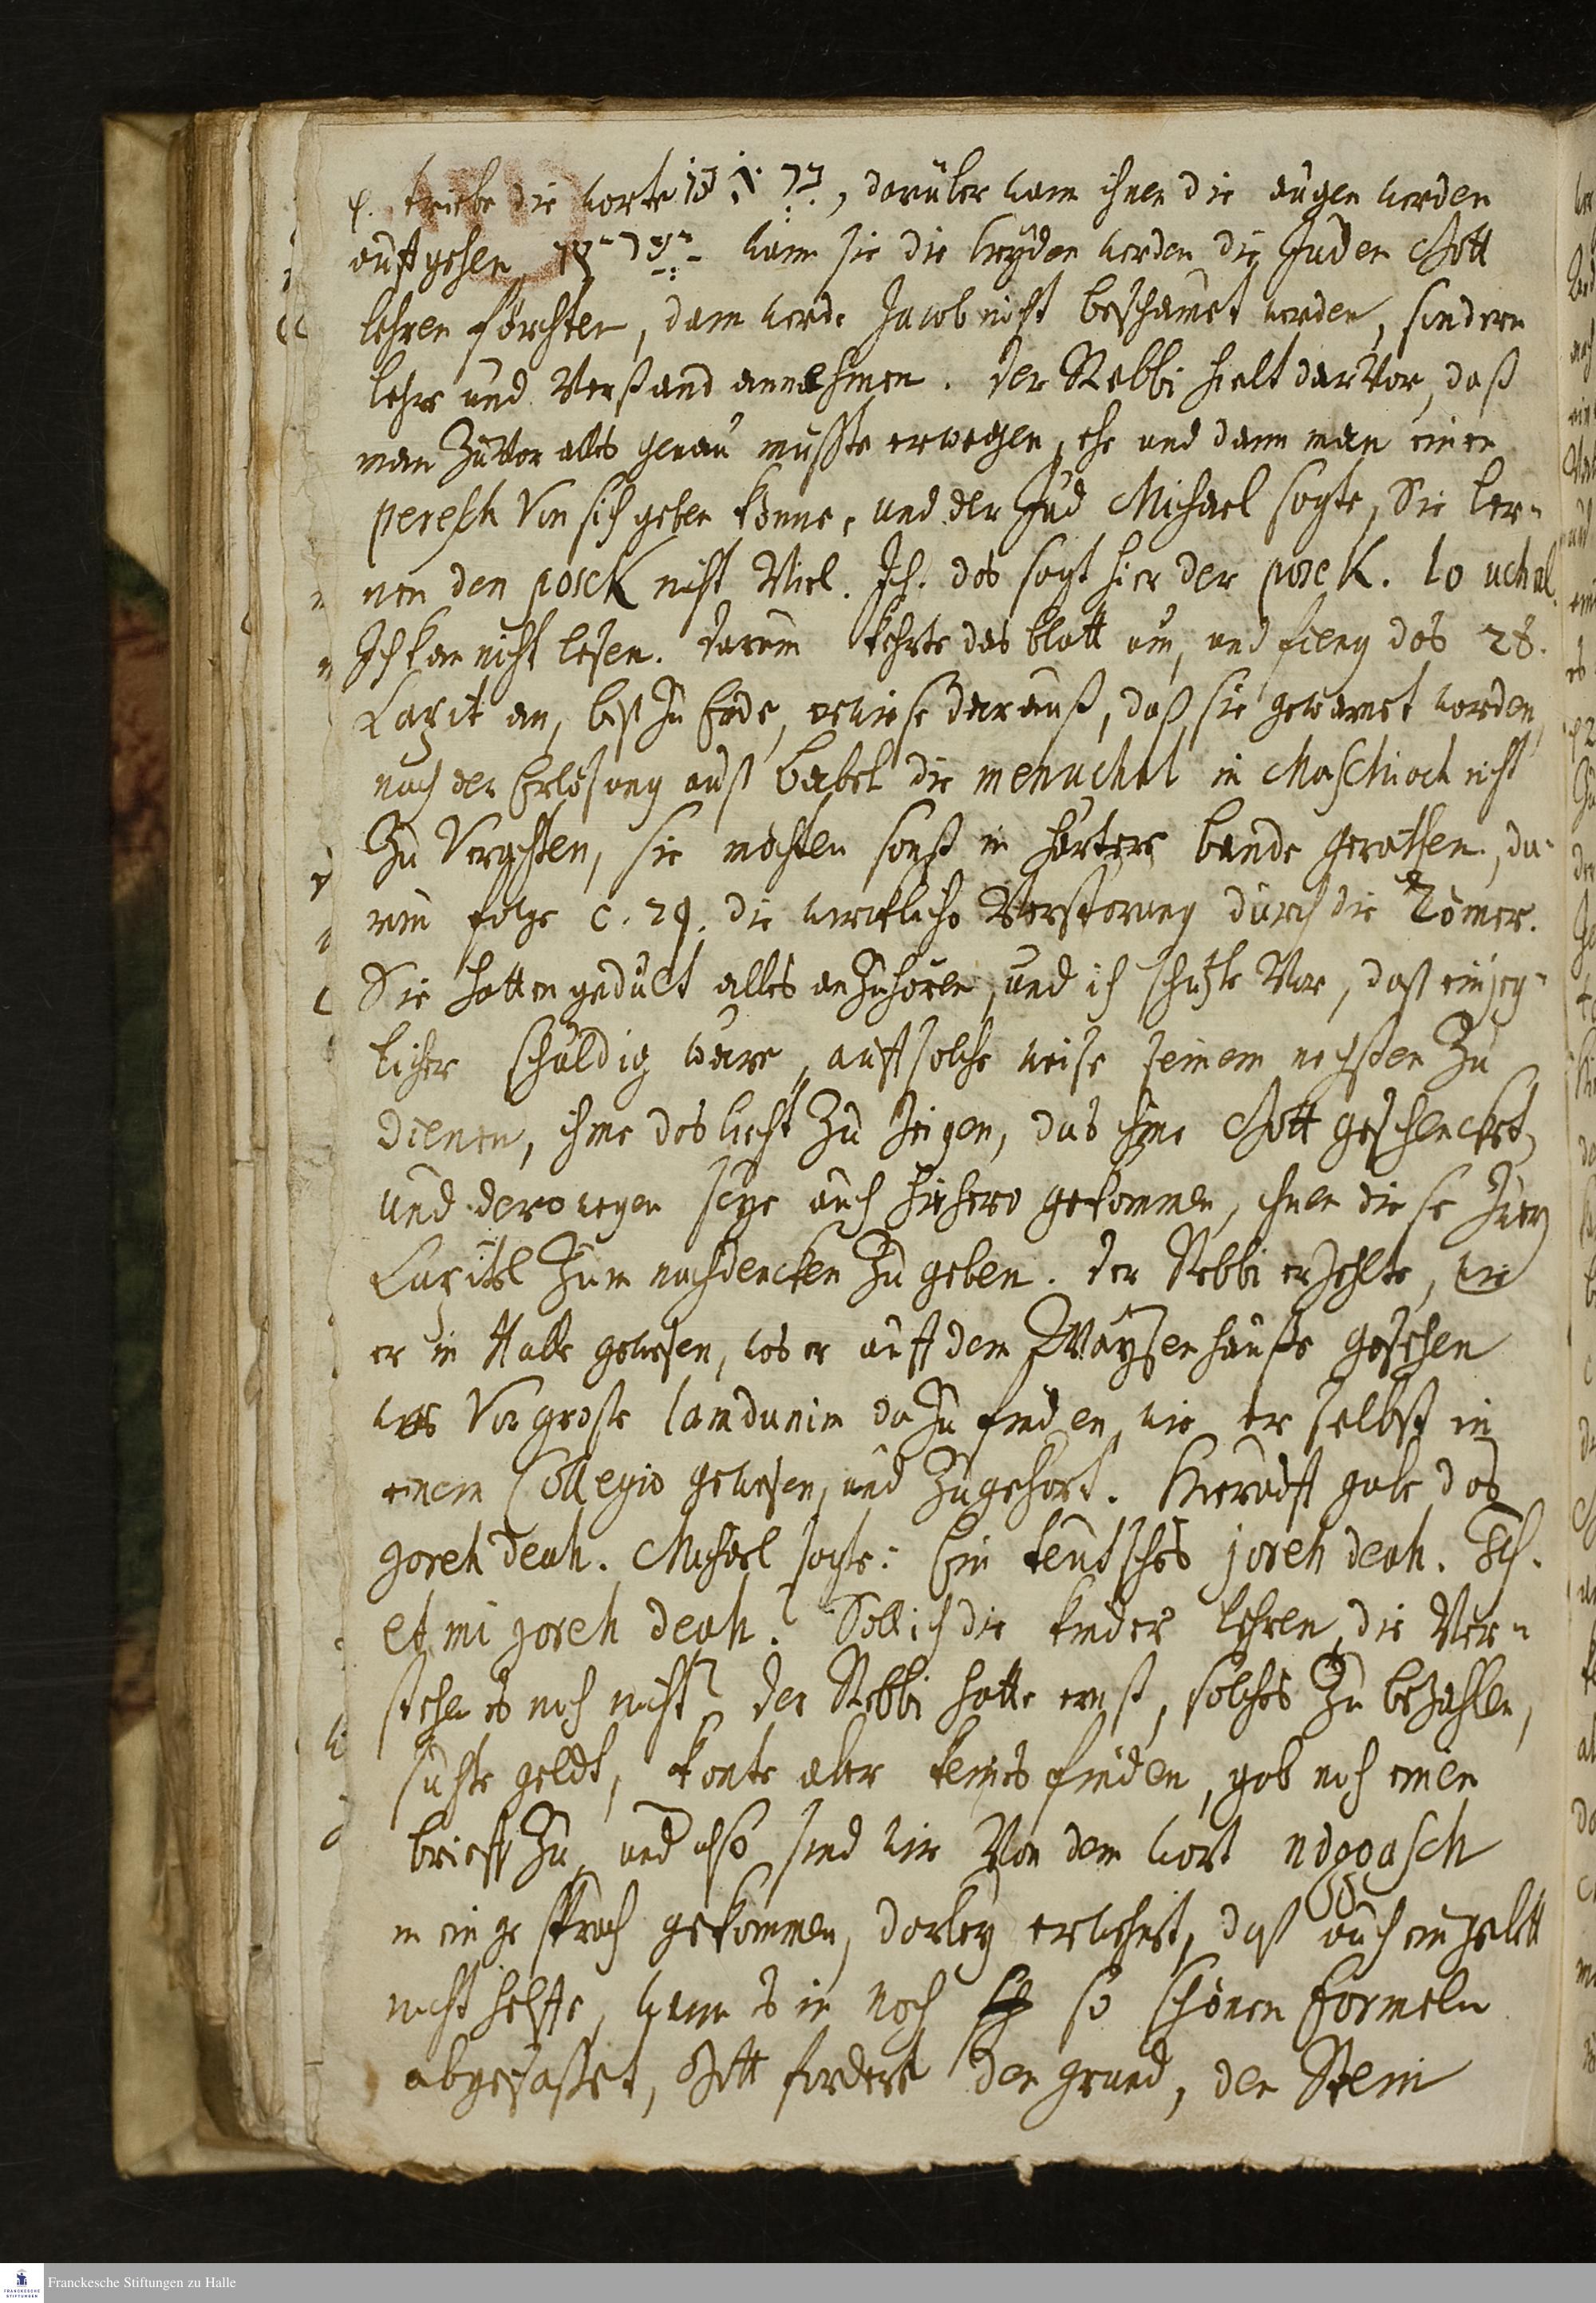 triebe die worte, darüber wann ihnen die augen werden
auffgehen, wann sie die heyden werden die Juden Gott
lehren förchten, dann werde Jacob nicht beschämet werden, sondern
lehre und Verstand annehmen. Der Rebbi hielt darvor, daß
man Zuvor alles genau müsste erwegen, ehe und dann man einen
peresch Von sich geben könne, und der Jud Michael sagte, Sie ler-
nen den posek nicht Viel. Ich. das sagt hier der posek. lo uchal
Ich kan nicht lesen. Darum kehrte das blatt um, und fieng das 28.
Capit an, biß Zu Ende, erwiese darauß, daß sie gewarnet worden,
nach der Erlösung auß Babel die menuchah in Maschiach nicht
Zu Verachten, sie möchten sonst in härtere bande gerathen, da-
rum folge c. 29. die würckliche Verstörung durch die Römer.
Sie hatten gedult alles anZuhören, und ich schützte Vor, daß ein jeg-
licher schuldig ware, auff solche weise seinem nechsten Zu
dienen, ihme das liecht Zu Zeigen, das ihme Gott geschencket,
und derowegen seye auch hiehero gekommen, ihnen diese Zwey
Capitel Zum nachdencken Zu geben. Der Rebbi erzehlte, wie
er in Halle gewesen, was er auff dem Waysenhauße gesehen
was Vor große lamdunim da Zu finden, wie er selbst in
einem Collegio gewesen, und Zugehört. Hierauff gabe das
joreh deah. Michael sagte: Ein teutsches joreh deah. Ich.
et mi joreh deah? Soll ich die kinder lehren, die Ver-
stehen es noch nicht? Der Rebbi hatte ernst, solches Zu bezahlen,
suchte geldt, konte aber keines finden, gab noch einen
brieff Zu, und also sind wir Von dem wort
in ein ge sprach gekommen, darbey erwehnt, daß auch ein gebett
nicht helffe, wann es in noch so schönen formeln
abgefasset, Gott fordere den grund, den Stein
Franckesche Stiftungen zu Halle